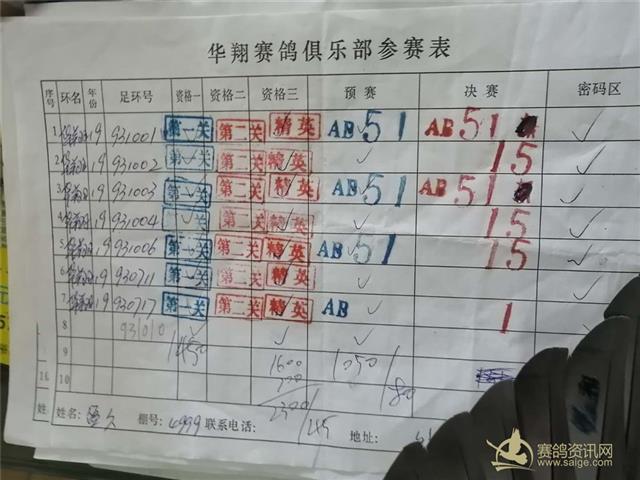 华翔赛鸽俱乐部参赛表
序号 环名 年份 足环号 资格一 资格二 资格三 预赛 决赛 密码区
1 19 931001 第一关 第二关 精英 AB 51 AB 51
2 19 931002 第一关 第二关 精英 15
3 19 931003 第一关 第二关 精英 AB 51 AB 51
4 19 931004 第一关 第二关 精英 15
5 19 931006 第一关 第二关 精英 AB 51 15
6 19 930711 第一关 第二关 精英
7 19 930717 第一关 第二关 精英 AB 1
8 93010
9 1450 1600 1050
16 10 700 180
2300
姓 姓名: 棚号: 4999 联系电话: 地址:
赛鸽资讯网
www.saige.com